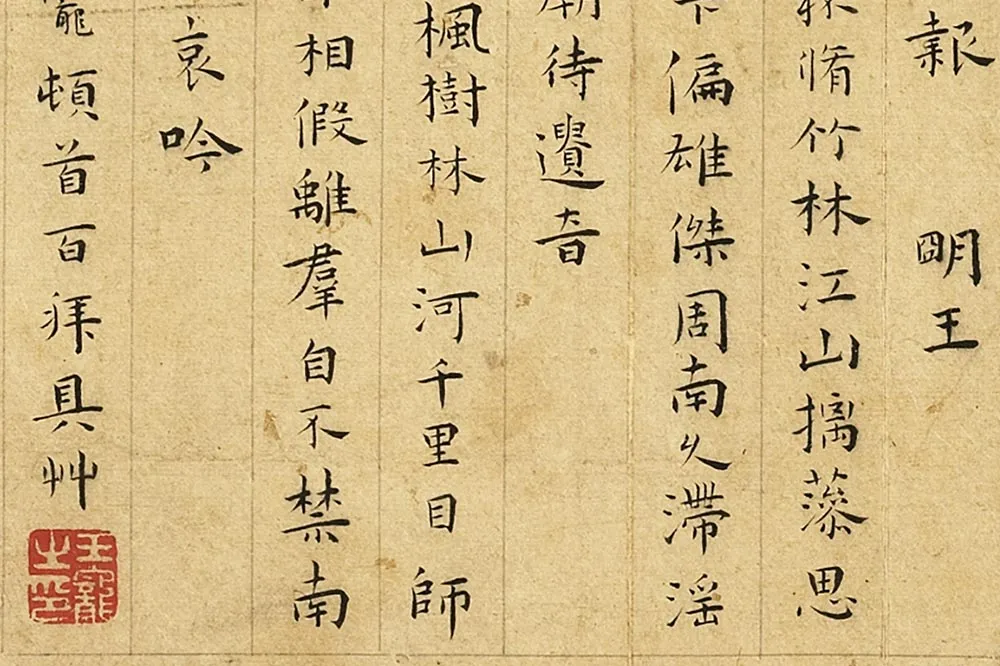 報 明王
脩竹林江山摛藻思
偏雄傑周南久滯滛
待遺音
楓樹林山河千里目師
相假離羣自不禁南
哀吟
寵頓首百拜具艸
王寵之印